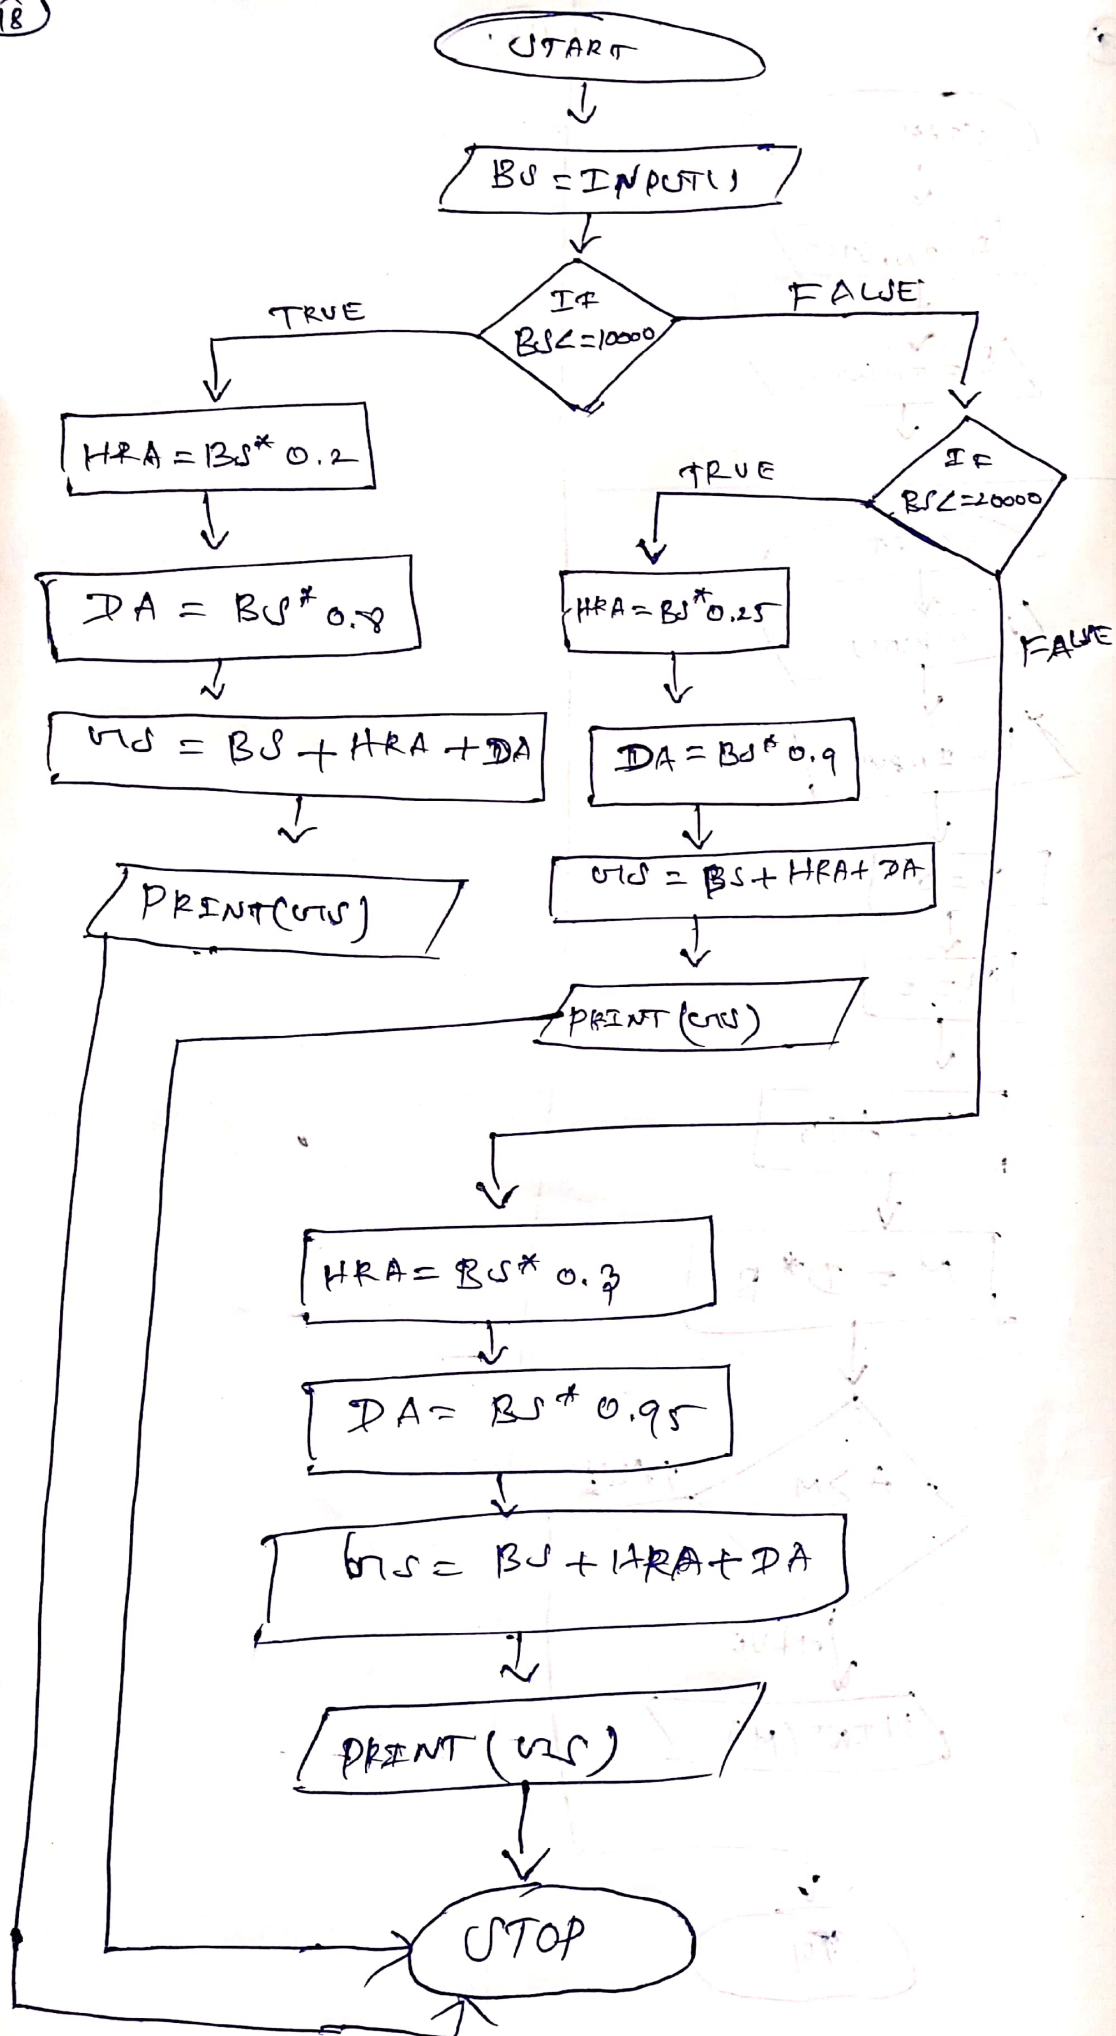 18
START
BS = INPUT()
IF
BS<=10000
TRUE
FALSE
HRA = BS* 0.2
DA = BS* 0.8
GS = BS + HRA + DA
PRINT(GS)
IF
BS<=20000
TRUE
FALSE
HRA = BS* 0.25
DA = BS* 0.9
GS = BS + HRA + DA
PRINT (GS)
HRA = BS* 0.3
DA = BS* 0.95
GS = BS + HRA + DA
PRINT (GS)
STOP